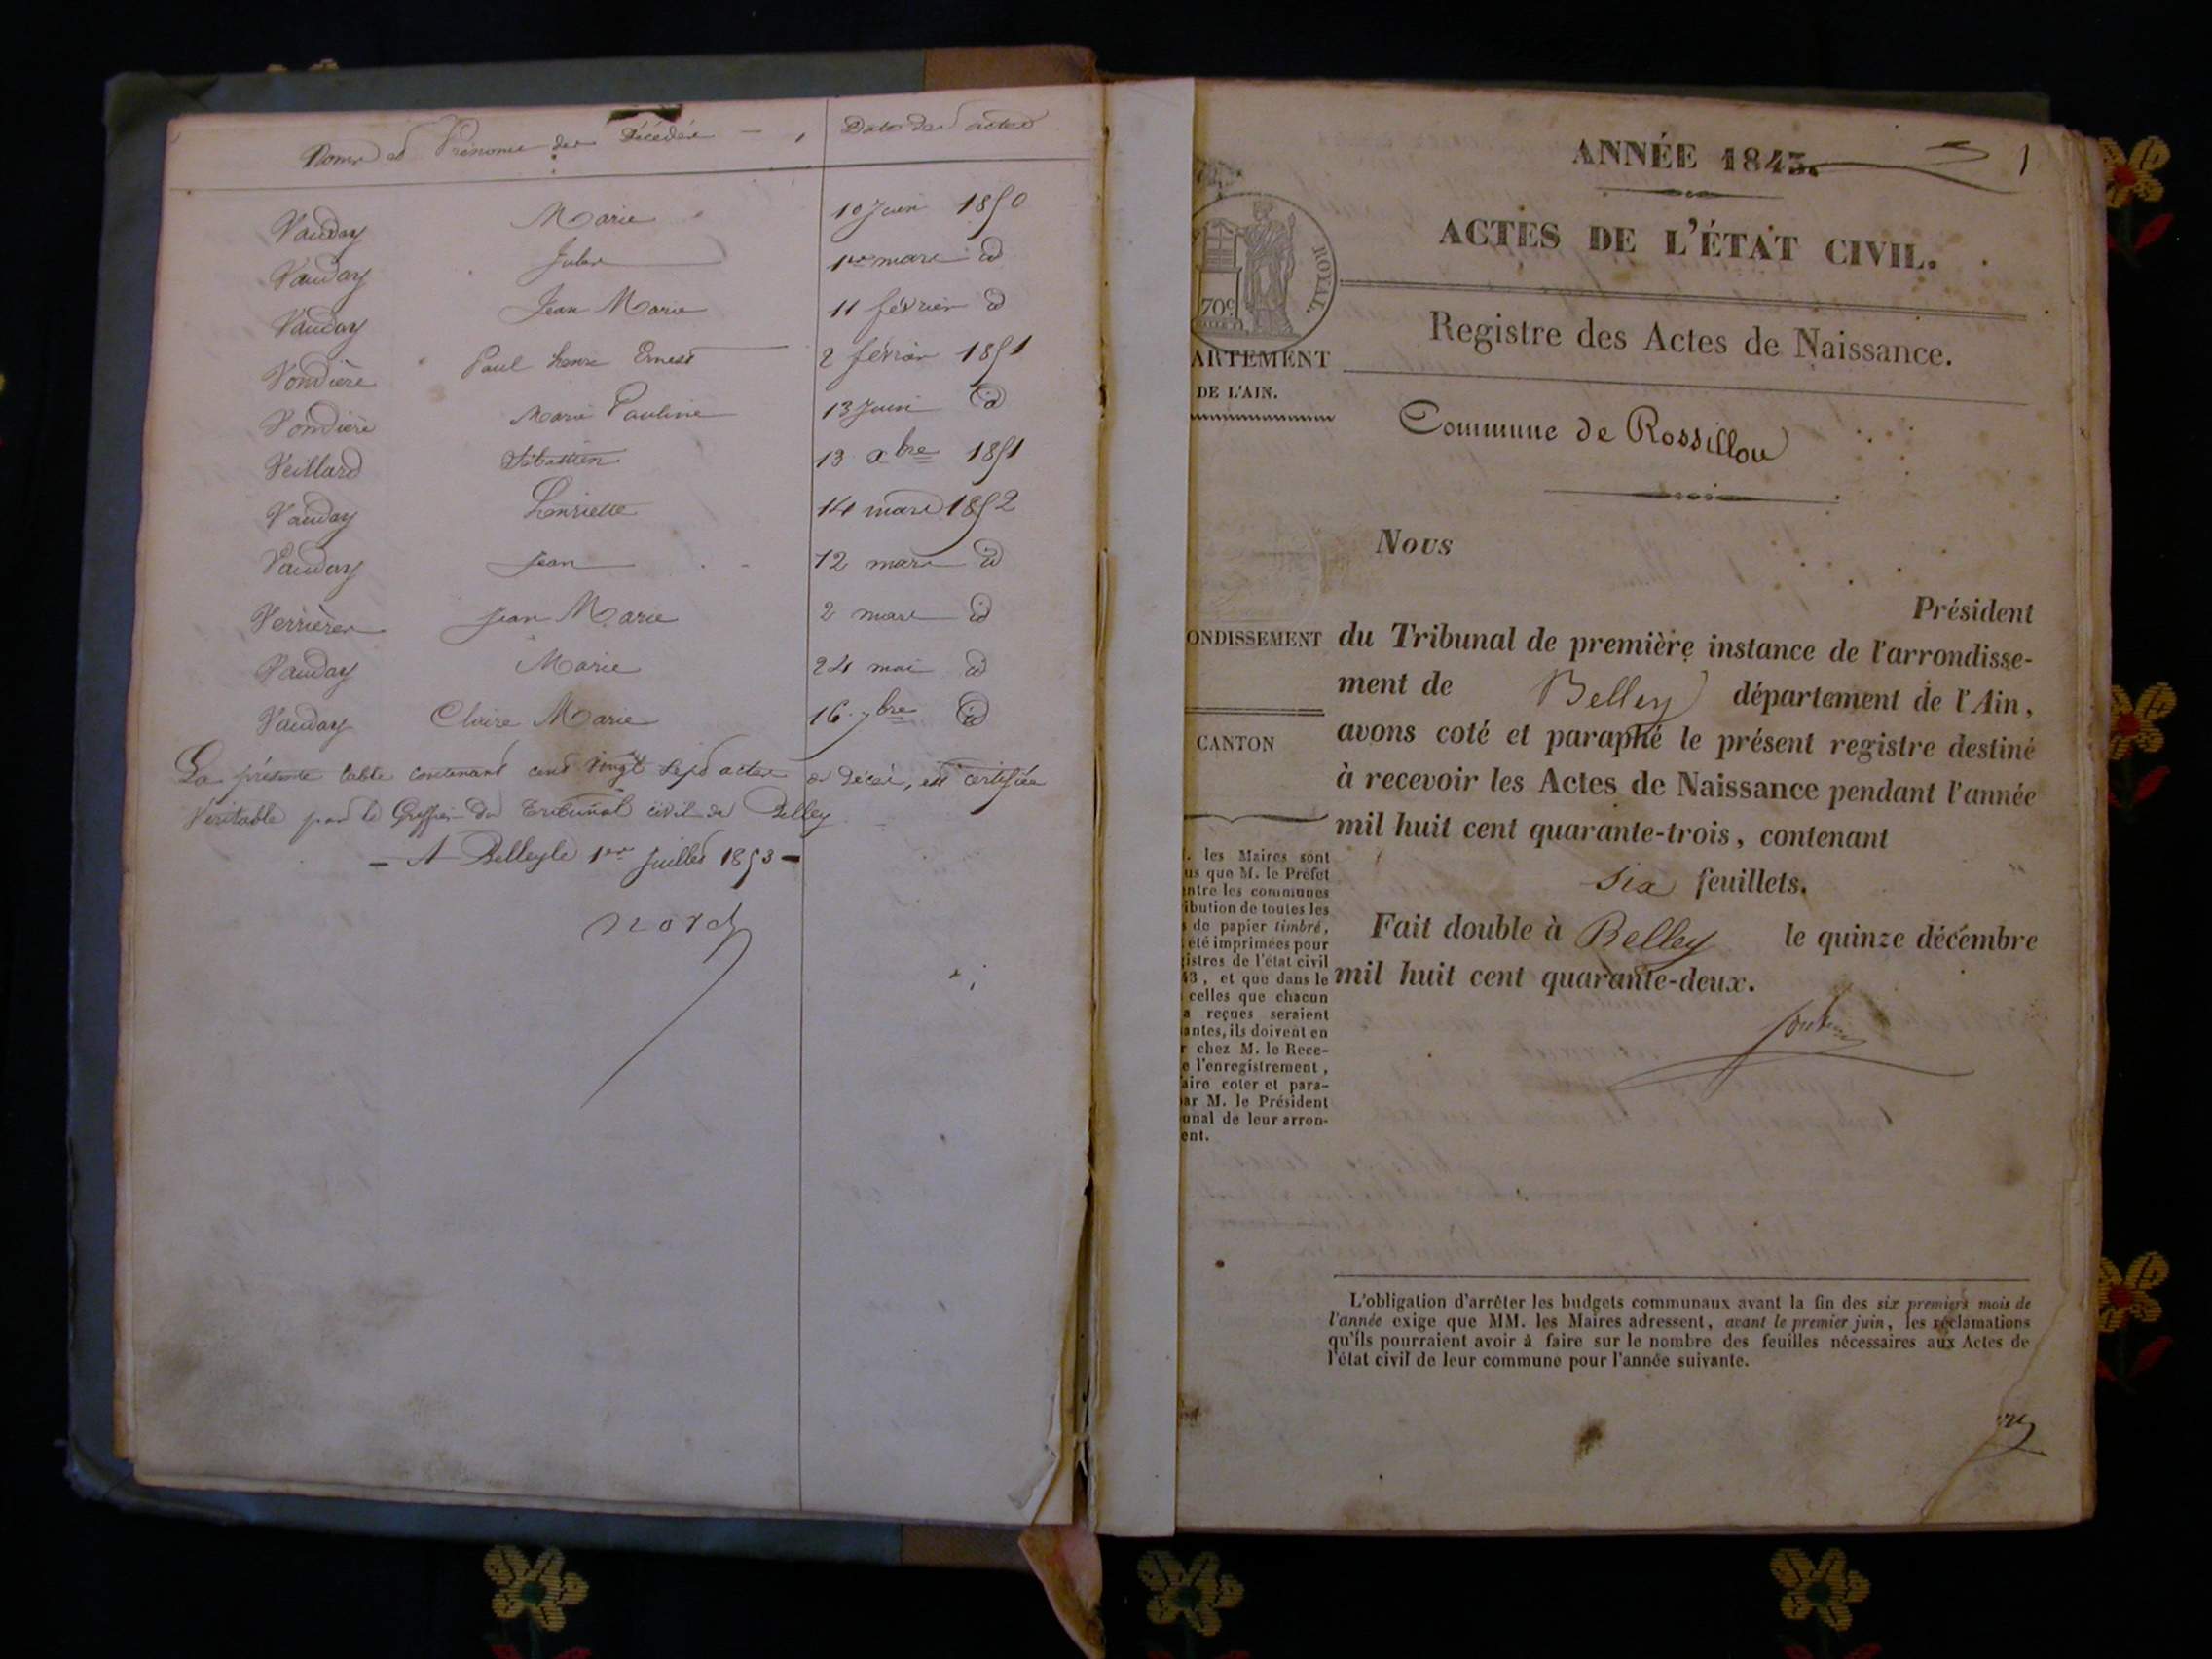 Noms et Prénoms des Décédés Date des actes
Vauday Marie 10 Juin 1850
Vauday Jules 1er mars id
Vauday Jean Marie 11 février id
Vondière Paul henri Ernest 2 février 1851
Vondière Marie Pauline 13 Juin id
Veillard Sébastien 13 xbre 1851
Vauday henriette 14 mars 1852
Vauday Jean 12 mars id
Verrières Jean Marie 2 mars id
Vauday Marie 24 mai id
Vauday Claire Marie 16 7bre id
La présente table contenant cent vingt sept actes de décès, est certifiée
Véritable par le Greffier du Tribunal civil de Belley
- A Belley le 1er Juillet 1853 -
1
ANNÉE 1843.
ACTES DE L'ÉTAT CIVIL.
ROYAL
70c
Registre des Actes de Naissance.
ARTEMENT
DE L'AIN.
Commune de Rossillon
Nous
Président
ONDISSEMENT
du Tribunal de première instance de l'arrondisse-
ment de Belley département de l'Ain,
CANTON
avons coté et paraphé le présent registre destiné
à recevoir les Actes de Naissance pendant l'année
mil huit cent quarante-trois, contenant
six feuillets.
Fait double à Belley le quinze décembre
mil huit cent quarante-deux.
. les Maires sont
us que M. le Préfet
ntre les communes
ibution de toutes les
s de papier timbré,
été imprimées pour
istres de l'état civil
43, et que dans le
celles que chacun
a reçues seraient
antes, ils doivent en
r chez M. le Rece-
e l'enregistrement,
aire coter et para-
ar M. le Président
unal de leur arron-
ent.
L'obligation d'arrêter les budgets communaux avant la fin des six premiers mois de
l'année exige que MM. les Maires adressent, avant le premier juin, les réclamations
qu'ils pourraient avoir à faire sur le nombre des feuilles nécessaires aux Actes de
l'état civil de leur commune pour l'année suivante.